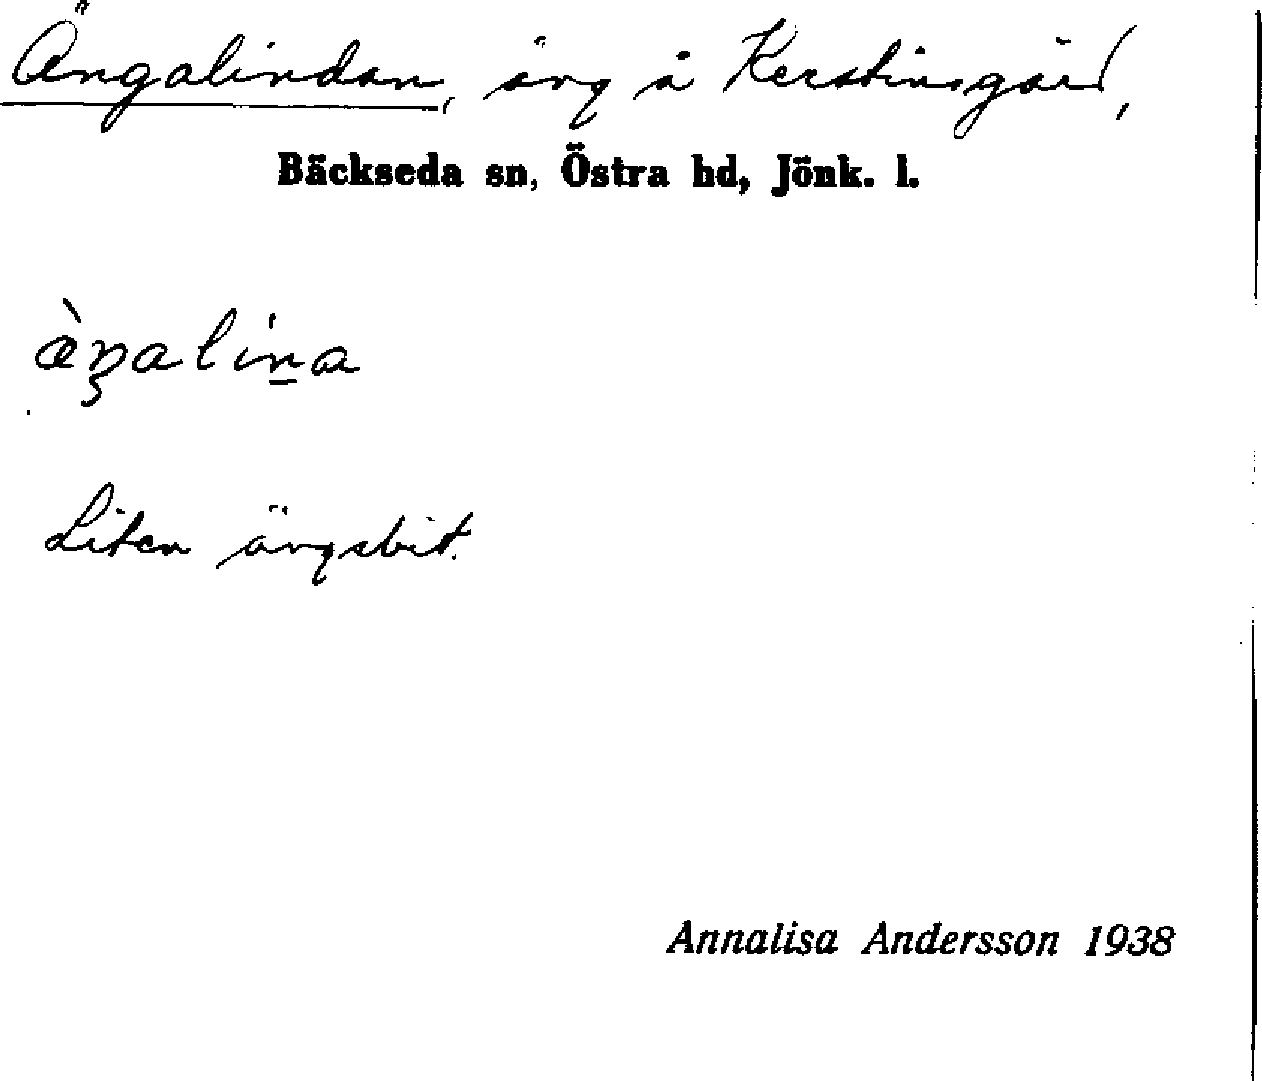 Ängalindan, äng å Kerstinsgård,
Bäckseda sn, Östra hd, Jönk. l.
æ̀ŋalin̲a
Liten ängsbit.
Annalisa Andersson 1938